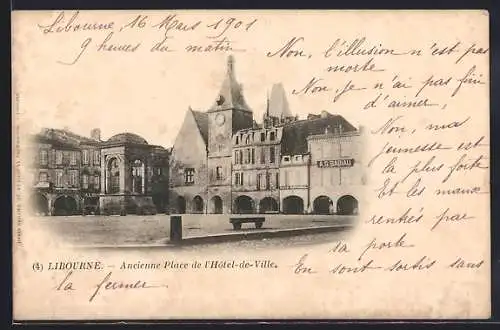 Libourne, 16 Mars 1901
9 heures du matin
Non, l'illusion n'est pas
morte
Non, je n'ai pas fini
d'aimer,
Non, ma
jeunesse est
la plus forte
Et les maux
rentrés par
la porte
En sont sortis sans
la fermer
(4) LIBOURNE. — Ancienne Place de l'Hôtel-de-Ville.